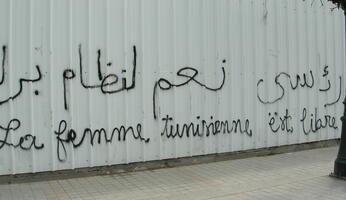 نعم لنظام رئاسي بر
La femme tunisienne est libre